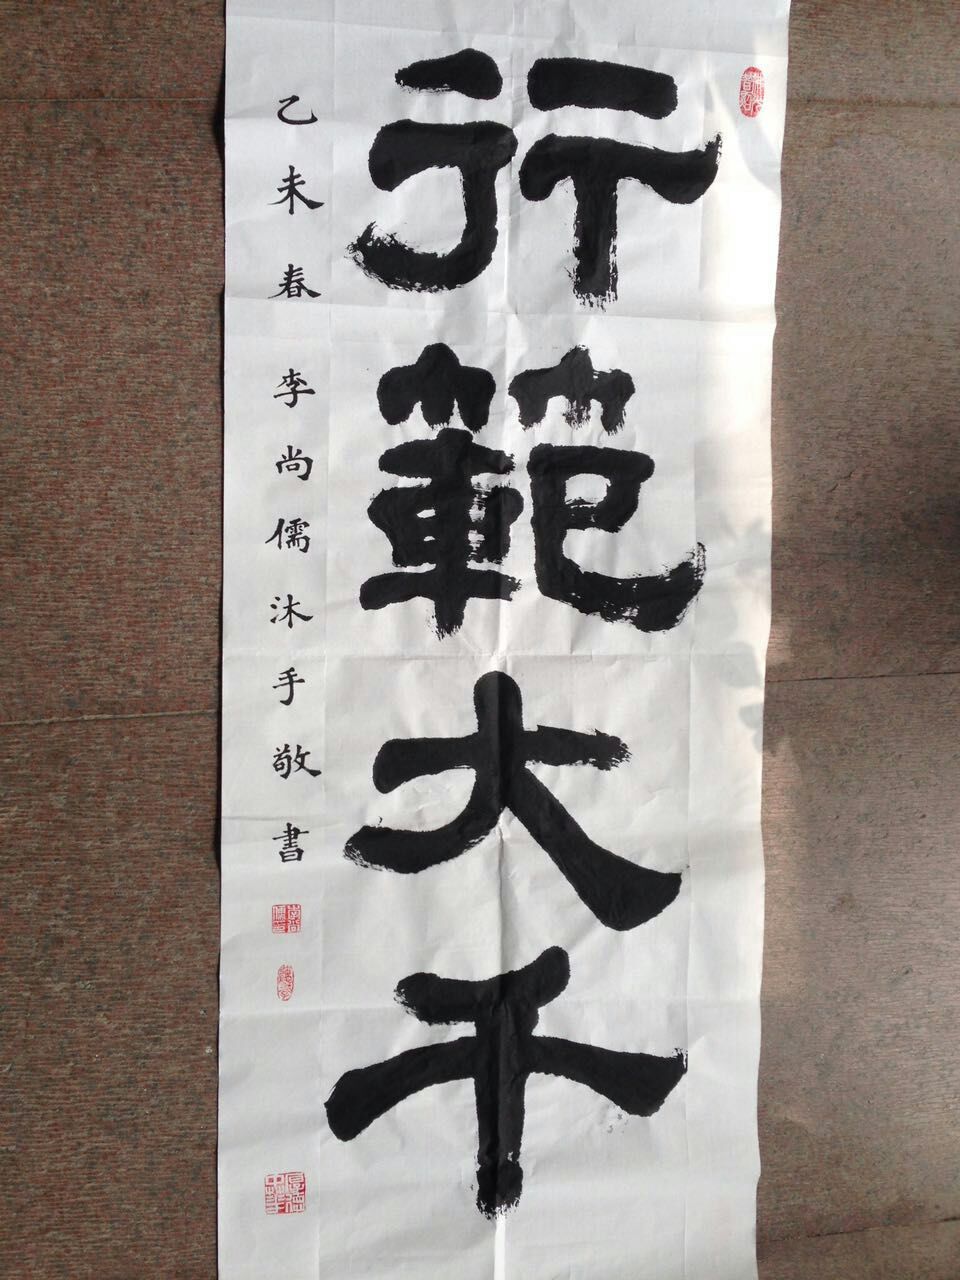 行範大千
乙未春 李尚儒沐手敬書